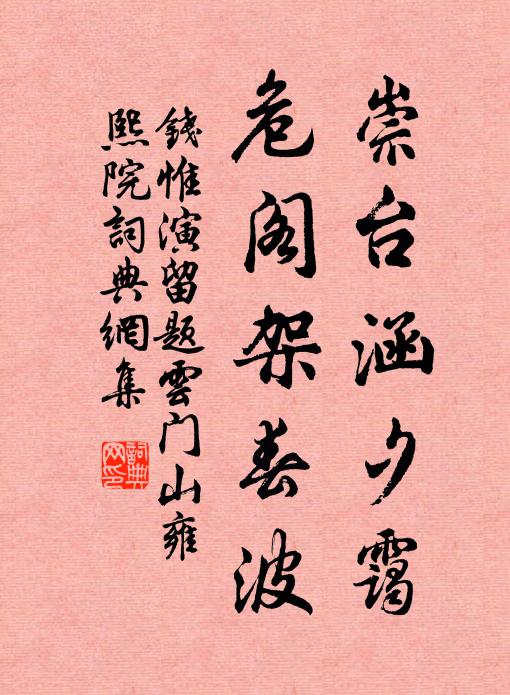 崇台涵夕霭
危阁架春波
錢惟演留題雲门山雍
熙院詞典網集
詞典网印